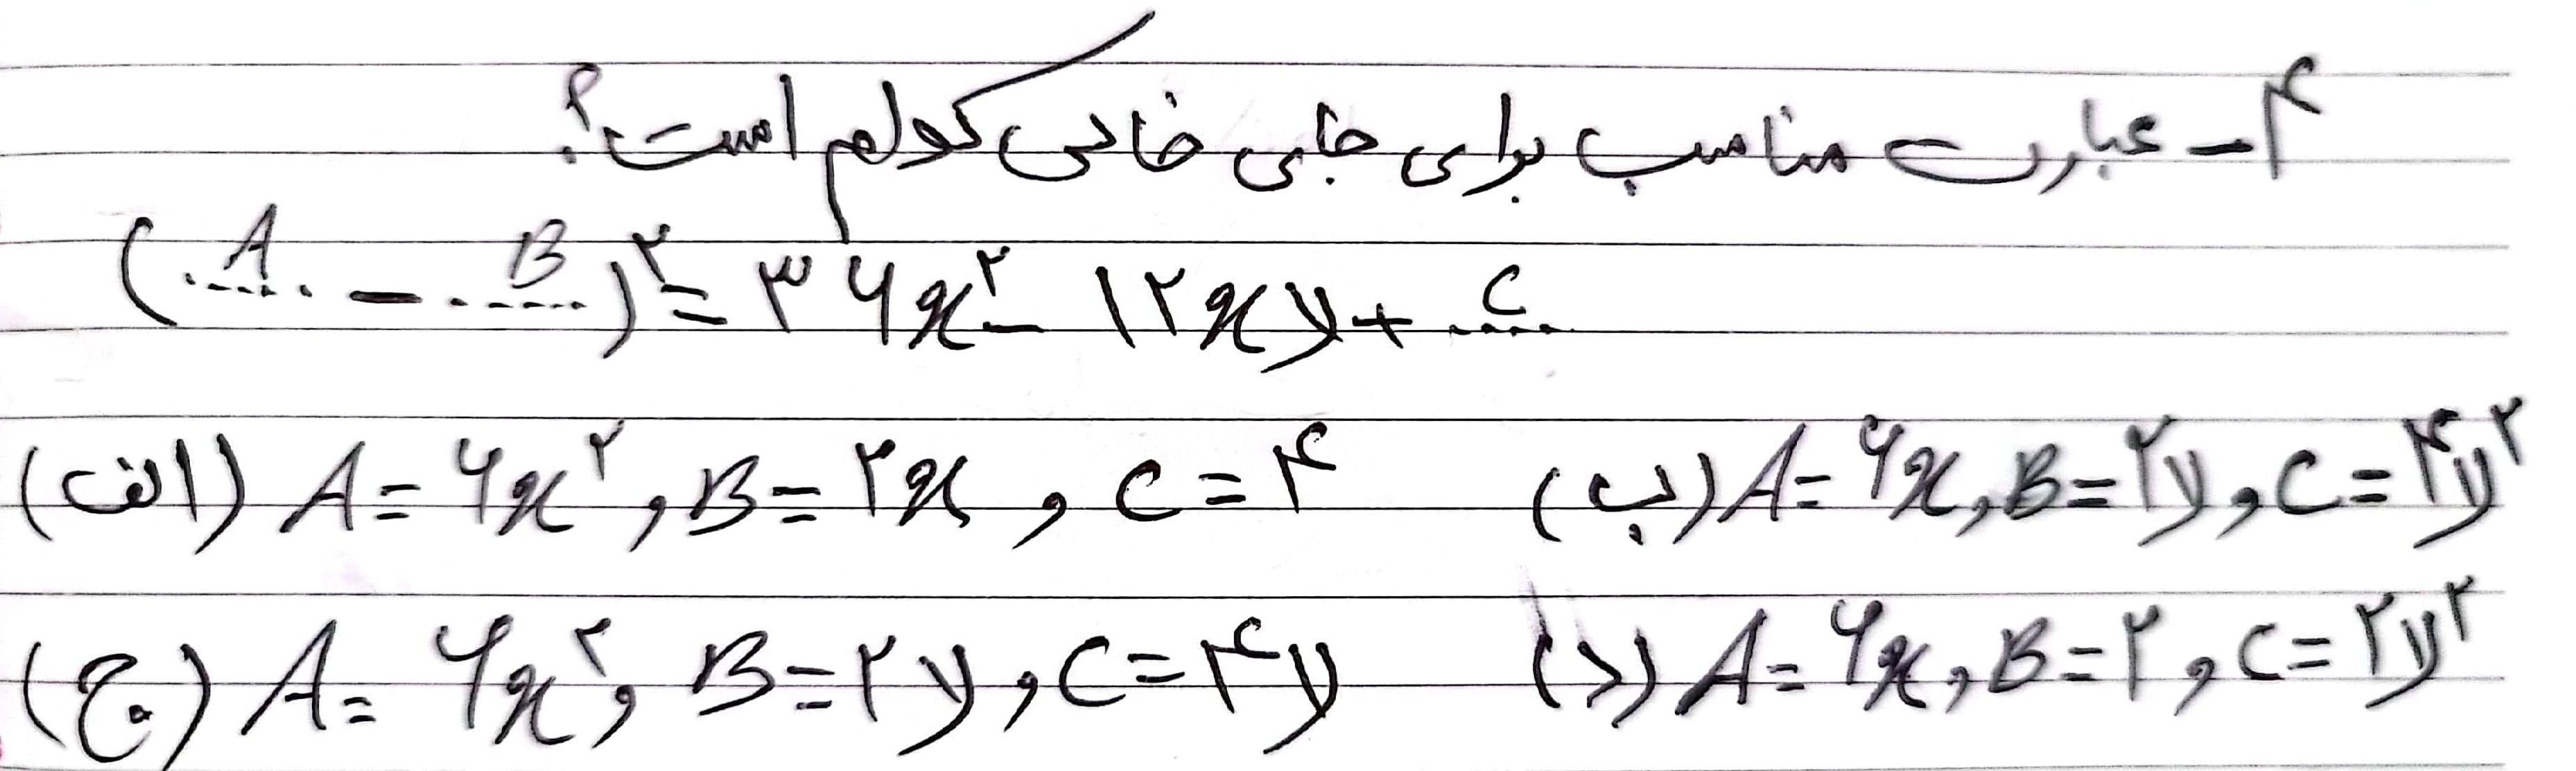 ۴- عبارت مناسب برای جای خالی کولم است؟
(...A... - ...B...)^۲ = ۳۶x^۲ - ۱۲xy + ...C...
(الف) A = ۶x^۲, B = ۲x, C = ۴ (ب) A = ۶x, B = ۲y, C = ۴y^۲
(ج) A = ۶x^۲, B = ۲y, C = ۴y (د) A = ۶x, B = ۲, C = ۲y^۲